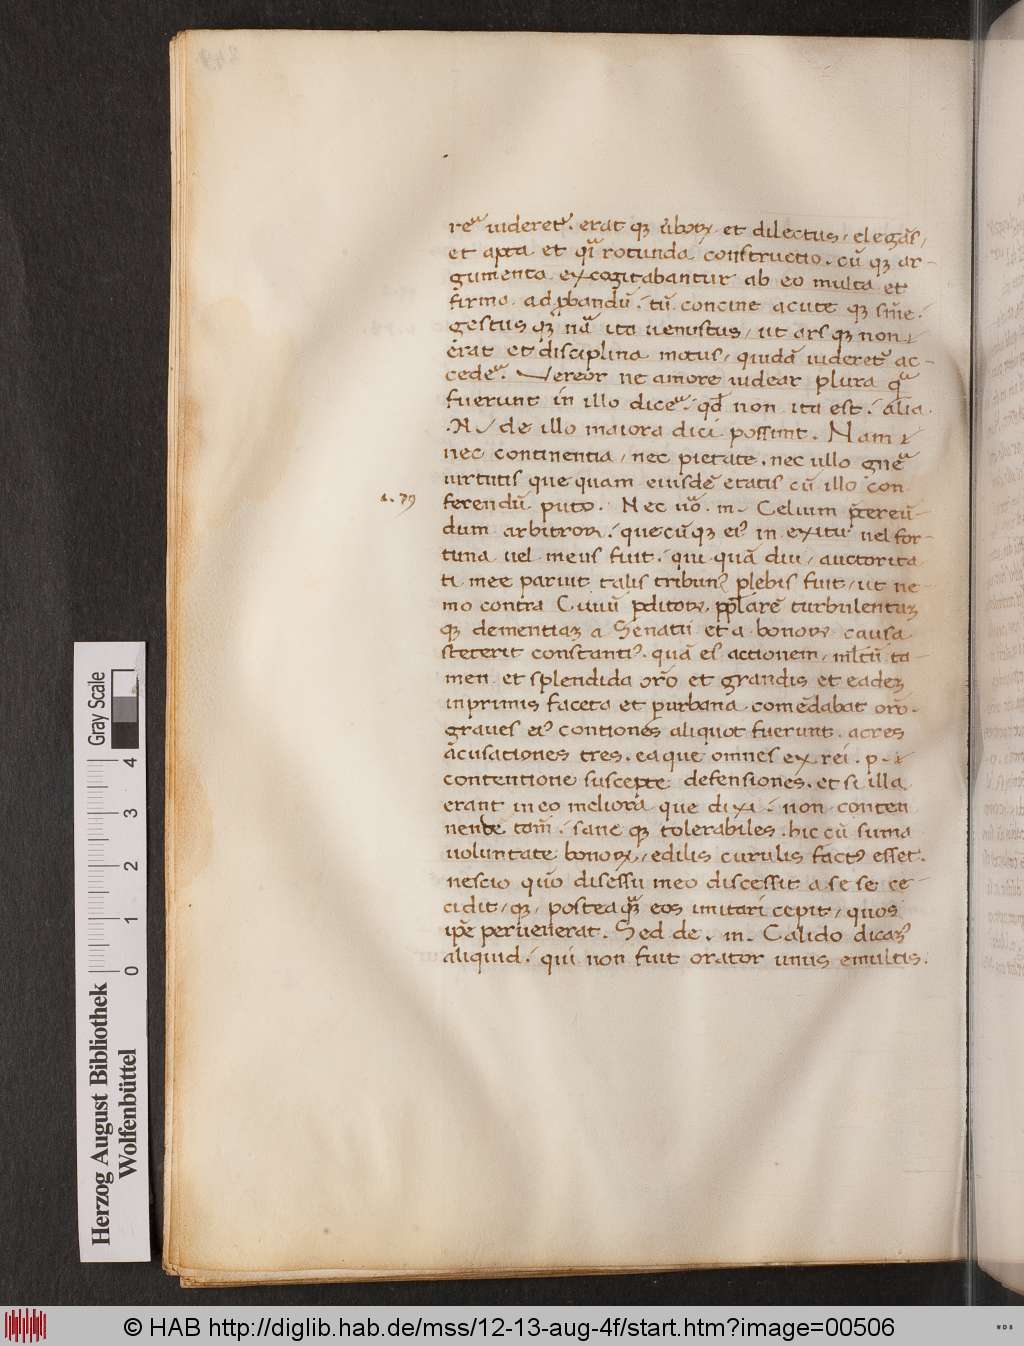 249
reᵃ uideretᵉ. erat qȝ ủboꝝ et dilectus, elegãs,
et apta et qᵃ̃i rotunda constructio. cũ qȝ ar-
gumenta excogitabantur ab eo multa et
firma ad ꝓbandũ. tũ concine acute qȝ snīe.
gestus qȝ nᵃ̃ ita uenustus, ut ars qȝ non
erat et disciplina motus, quidã uideretᵉ ac-
cedeᵃ. Vereor ne amore uidear plura qᵃ̃
fuerunt in illo diceᵃ. qđ non ita est. alia
.N. de illo maiora dici possunt. Nam
nec continentia, nec pietate. nec ullo gñeᵃ
uirtutis que quam eiusdẽ etatis cũ illo con
1. 79
ferendũ puto. Nec uᵒ̃ .m. Celium p̃tereũ-
dum arbitroꝝ. quecũqȝ eiꝰ in exitu uel for-
tuna uel mens fuit. qui quã diu auctorita
ti mee paruit talis tribunꝰ plebis fuit, ut ne-
mo contra Ciuiũ ꝑditoꝝ, ppl̃arẽ turbulentaȝ
qȝ dementiaȝ a Senatu et a bonoꝝ causa
steterit constantiꝰ. quã eiꝰ actionem, ml̃tũ ta-
men et splendida orõ et grandis et eadeȝ
inprimis faceta et ꝑurbana comẽdabat orõ.
graues eiꝰ contiones aliquot fuerunt. acres
acusationes tres. eaque omnes ex rei .p.
contentione suscepte defensiones. et si illa
erant in eo meliora que dixi. non conten
nende tom̃. sane qȝ tolerabiles. hic cũ suma
uoluntate bonoꝝ, edilis curulis factꝰ esset.
nescio quõ disessu meo discessit a se se ce-
cidit, qȝ, postea qᵃ̃ȝ eos imitari cepit, quos
ip̃e peruenerat. Sed de .m. Calido dicaꝰ
aliquid. qui non fuit orator unus emultis.
Gray Scale
0 1 2 3 4
Herzog August Bibliothek
Wolfenbüttel
© HAB http://diglib.hab.de/mss/12-13-aug-4f/start.htm?image=00506